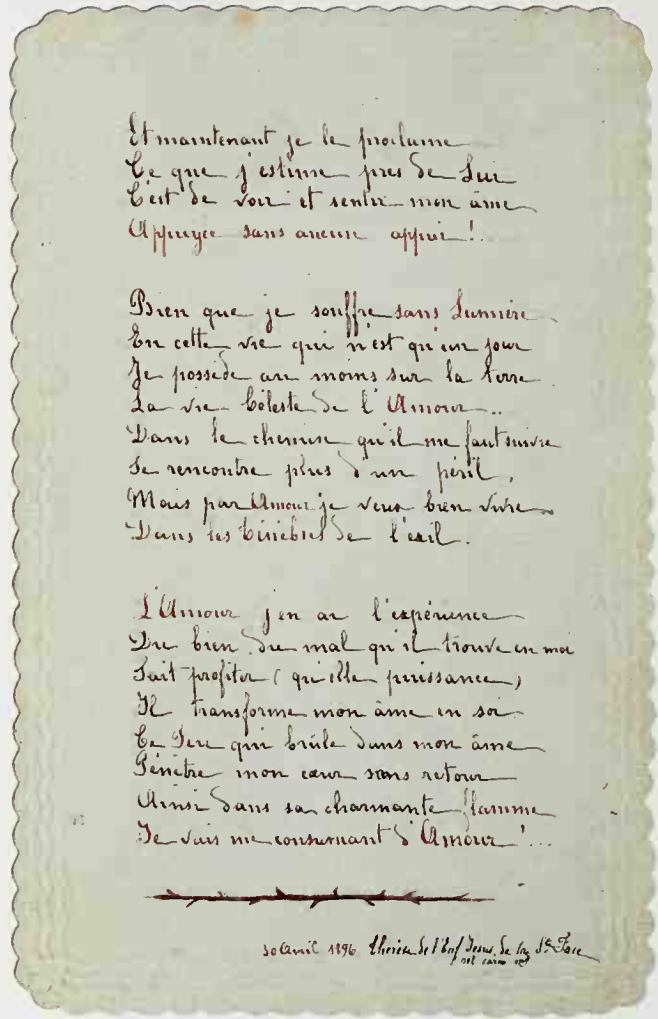 Et maintenant je le proclame
Ce que j'estime près de Lui
C'est de voir et sentir mon âme
Appuyée sans aucun appui !..
Bien que je souffre sans Lumière
En cette vie qui n'est qu'un jour
Je possède au moins sur la terre
La vie Céleste de l'Amour...
Dans le chemin qu'il me faut suivre
Se rencontre plus d'un péril,
Mais par Amour je veux bien vivre
Dans les Ténèbres de l'exil.
L'Amour j'en ai l'expérience
Du bien, du mal qu'il trouve en moi
Sait profiter (quelle puissance)
Il transforme mon âme en soi
Ce Feu qui brûle dans mon âme
Pénètre mon cœur sans retour
Ainsi dans sa charmante flamme
Je vais me consumant d'Amour !...
30 Avril 1896 Thérèse de l'Enf Jésus, de la Ste Face
rel carm